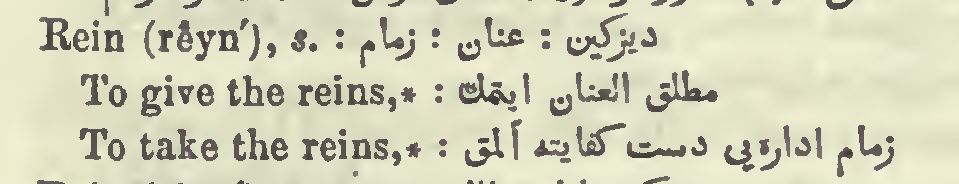 Rein (rêyn′), s. : زمام : عنان : ديزكين
To give the reins,* : مطلق العنان ايتمك
To take the reins,* : زمام اداره‌يی دست كفايته آلمق